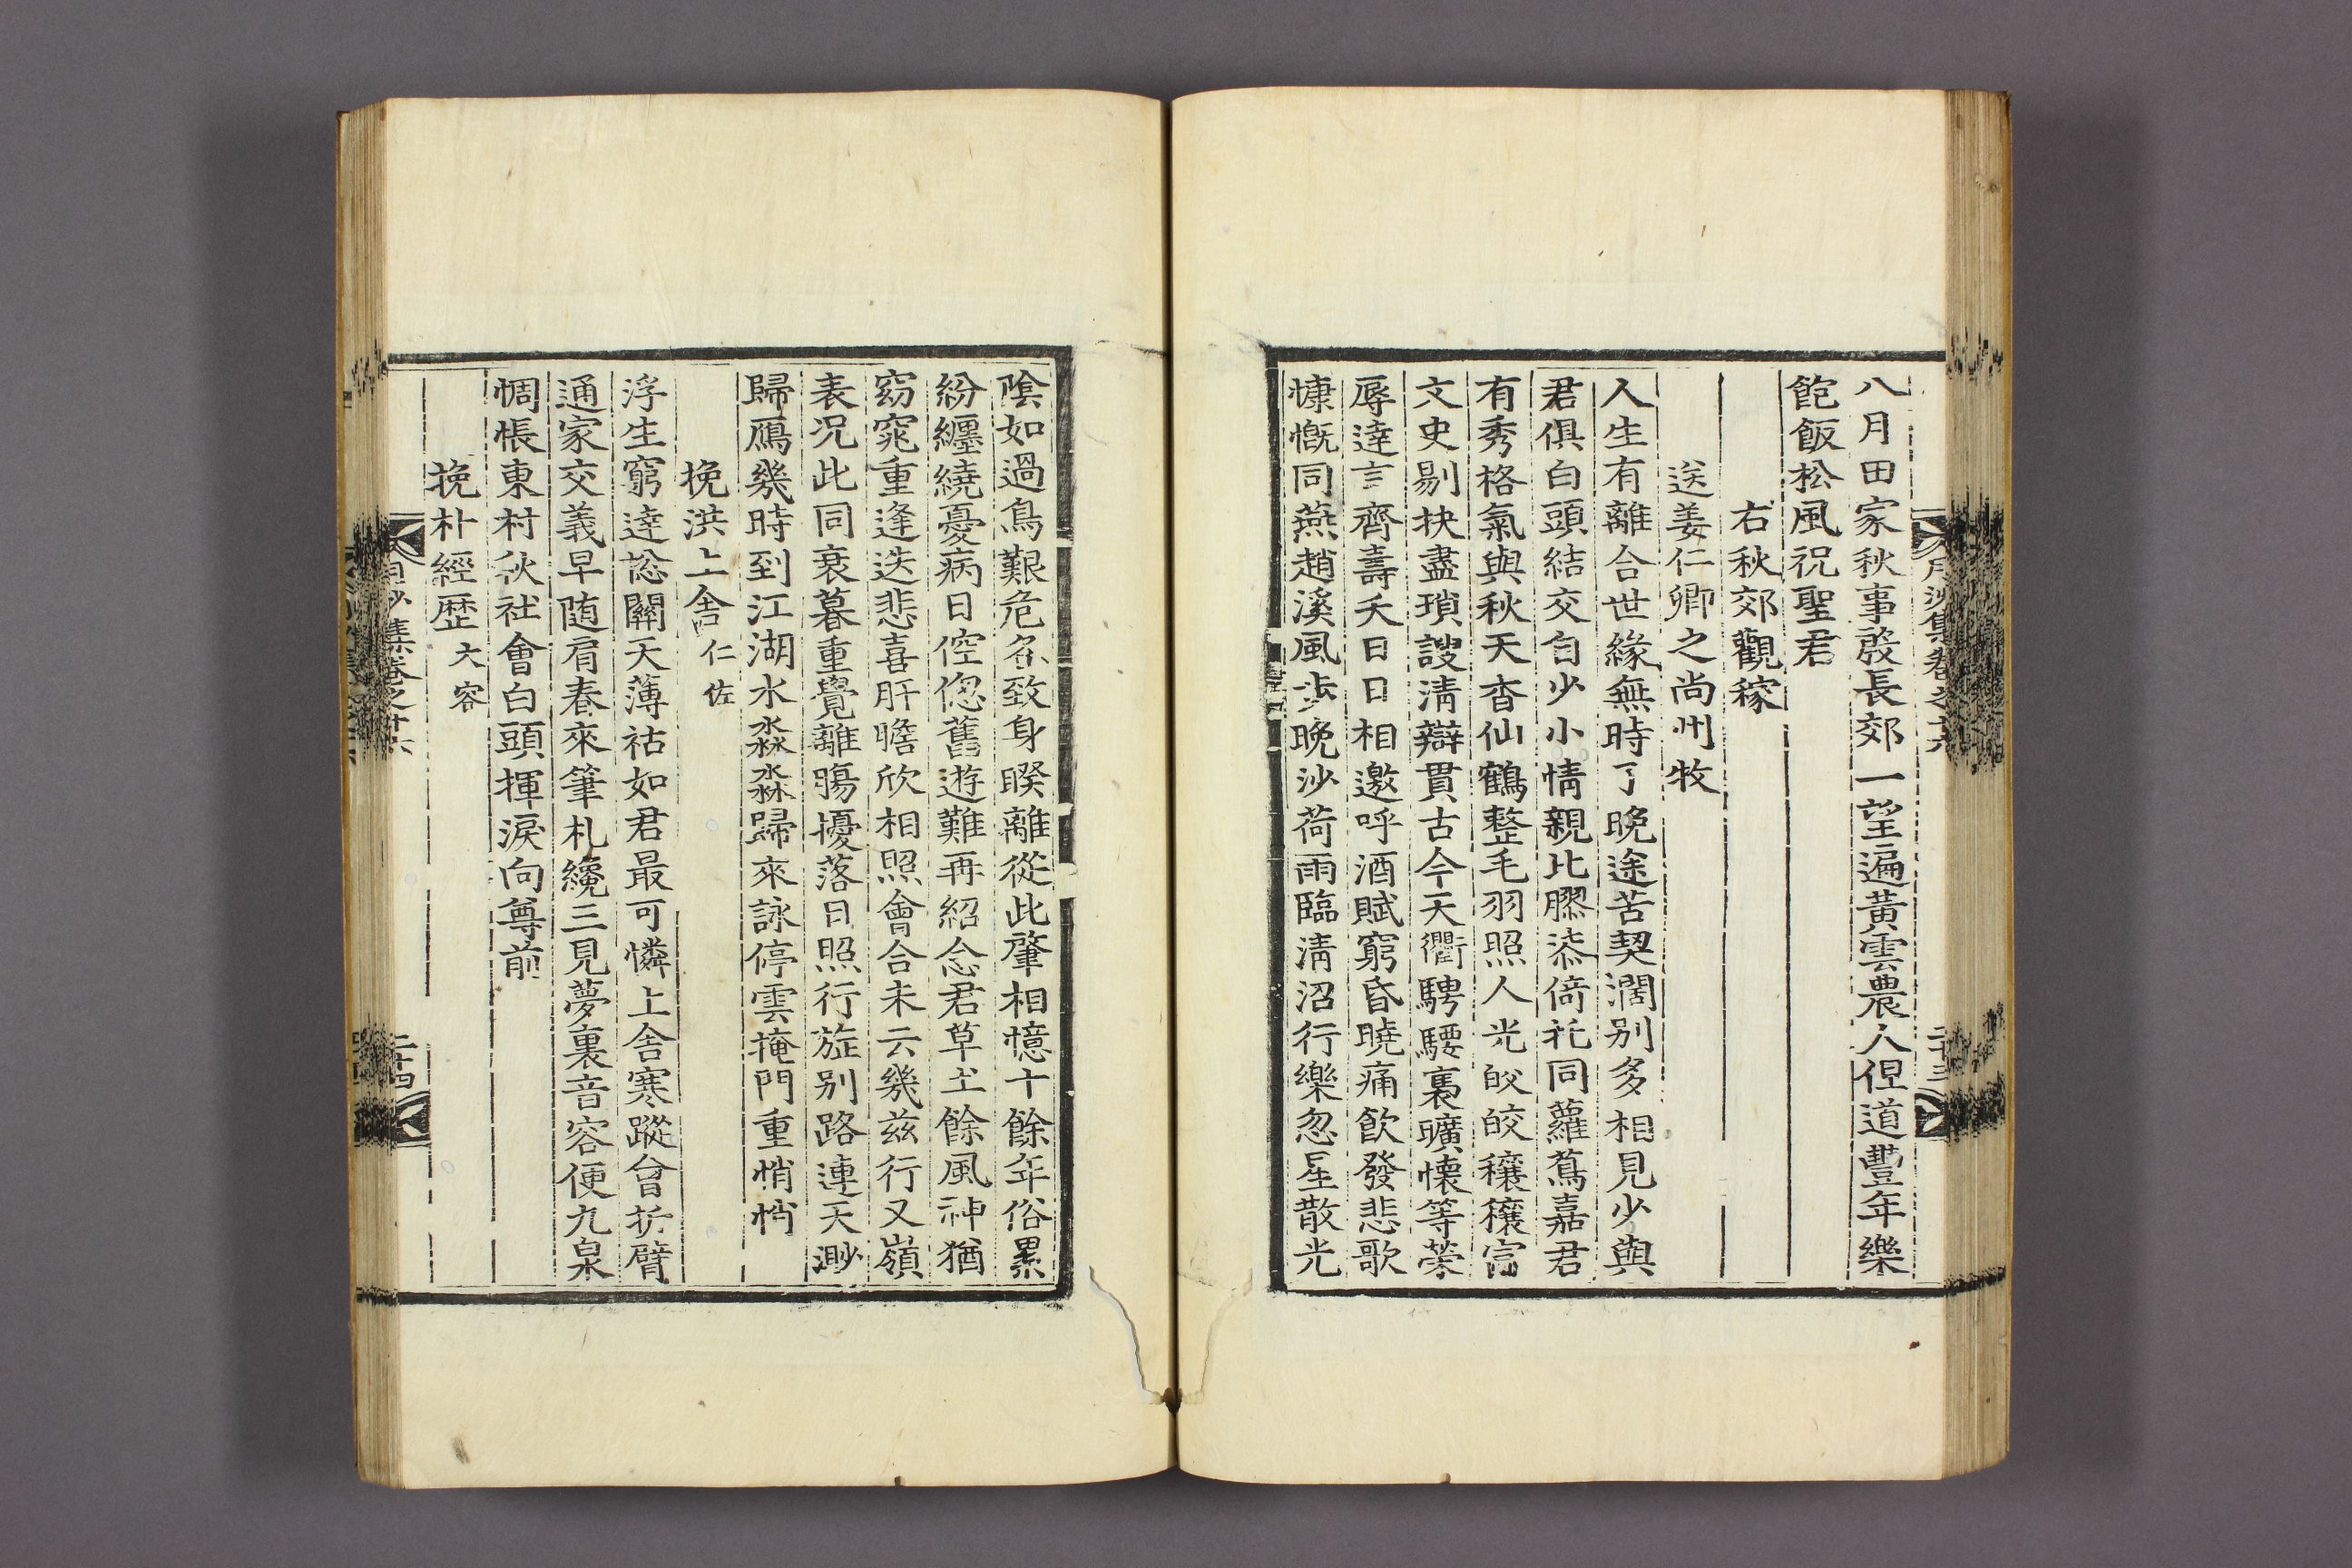 月沙集卷之十六 二十三
八月田家秋事殷長郊一望遍黃雲農人俚道豐年樂
飽飯松風祝聖君
右秋郊觀稼
送姜仁卿之尙州牧
人生有離合世緣無時了晚途苦契濶別多相見少與
君俱白頭結交自少小情親比膠漆倚托同蘿蔦嘉君
有秀格氣與秋天杳仙鶴整毛羽照人光皎皎穰穰富
文史剔抉盡瑣謏淸辯貫古今天衢騁騕褭曠懷等榮
辱達言齊壽夭日日相邀呼酒賦窮昏曉痛飮發悲歌
慷慨同燕趙溪風步晚沙荷雨臨淸沼行樂忽星散光
陰如過鳥艱危各致身睽離從此肇相憶十餘年俗累
紛纏繞憂病日倥偬舊遊難再紹念君草土餘風神猶
窈窕重逢迭悲喜肝膽欣相照會合未云幾玆行又嶺
表况此同衰暮重覺離膓擾落日照行旌別路連天渺
歸鴈幾時到江湖水淼淼歸來詠停雲掩門重悄悄
挽洪上舍 仁佐
浮生窮達㧾關天薄祜如君最可憐上舍寒蹤曾折臂
通家交義早随肩春來筆札纔三見夢裏音容便九泉
惆悵東村秋社會白頭揮淚向尊前
挽朴經歷 大容
月沙集卷之十六 二十四